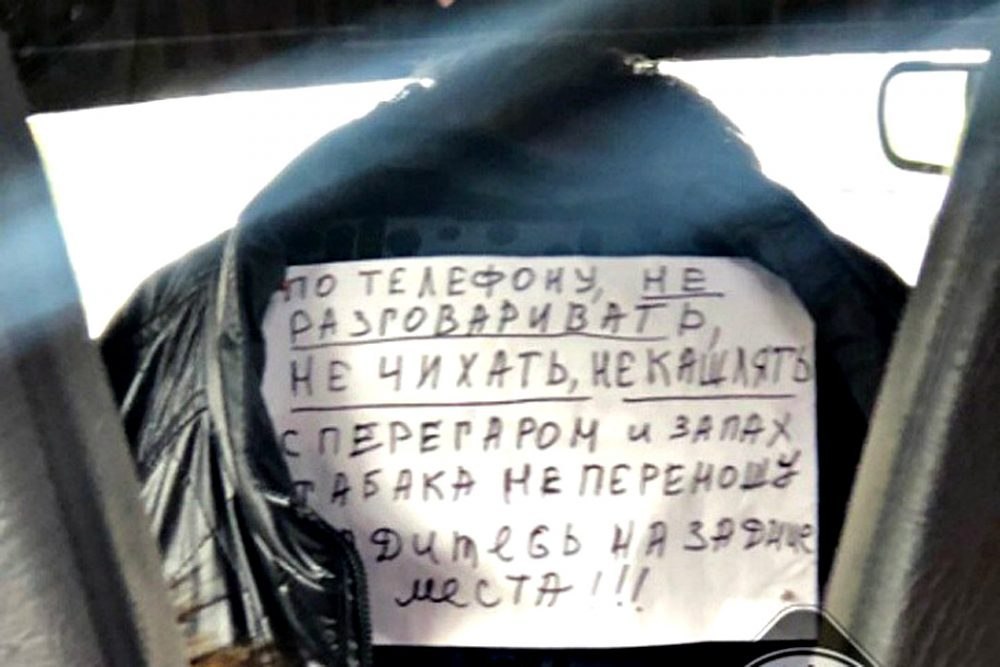 ПО ТЕЛЕФОНУ, НЕ
РАЗГОВАРИВАТЬ,
НЕ ЧИХАТЬ, НЕ КАШЛЯТЬ
С ПЕРЕГАРОМ и ЗАПАХ
ТАБАКА НЕ ПЕРЕНОШУ
адитесь НА ЗАДНие
места!!!